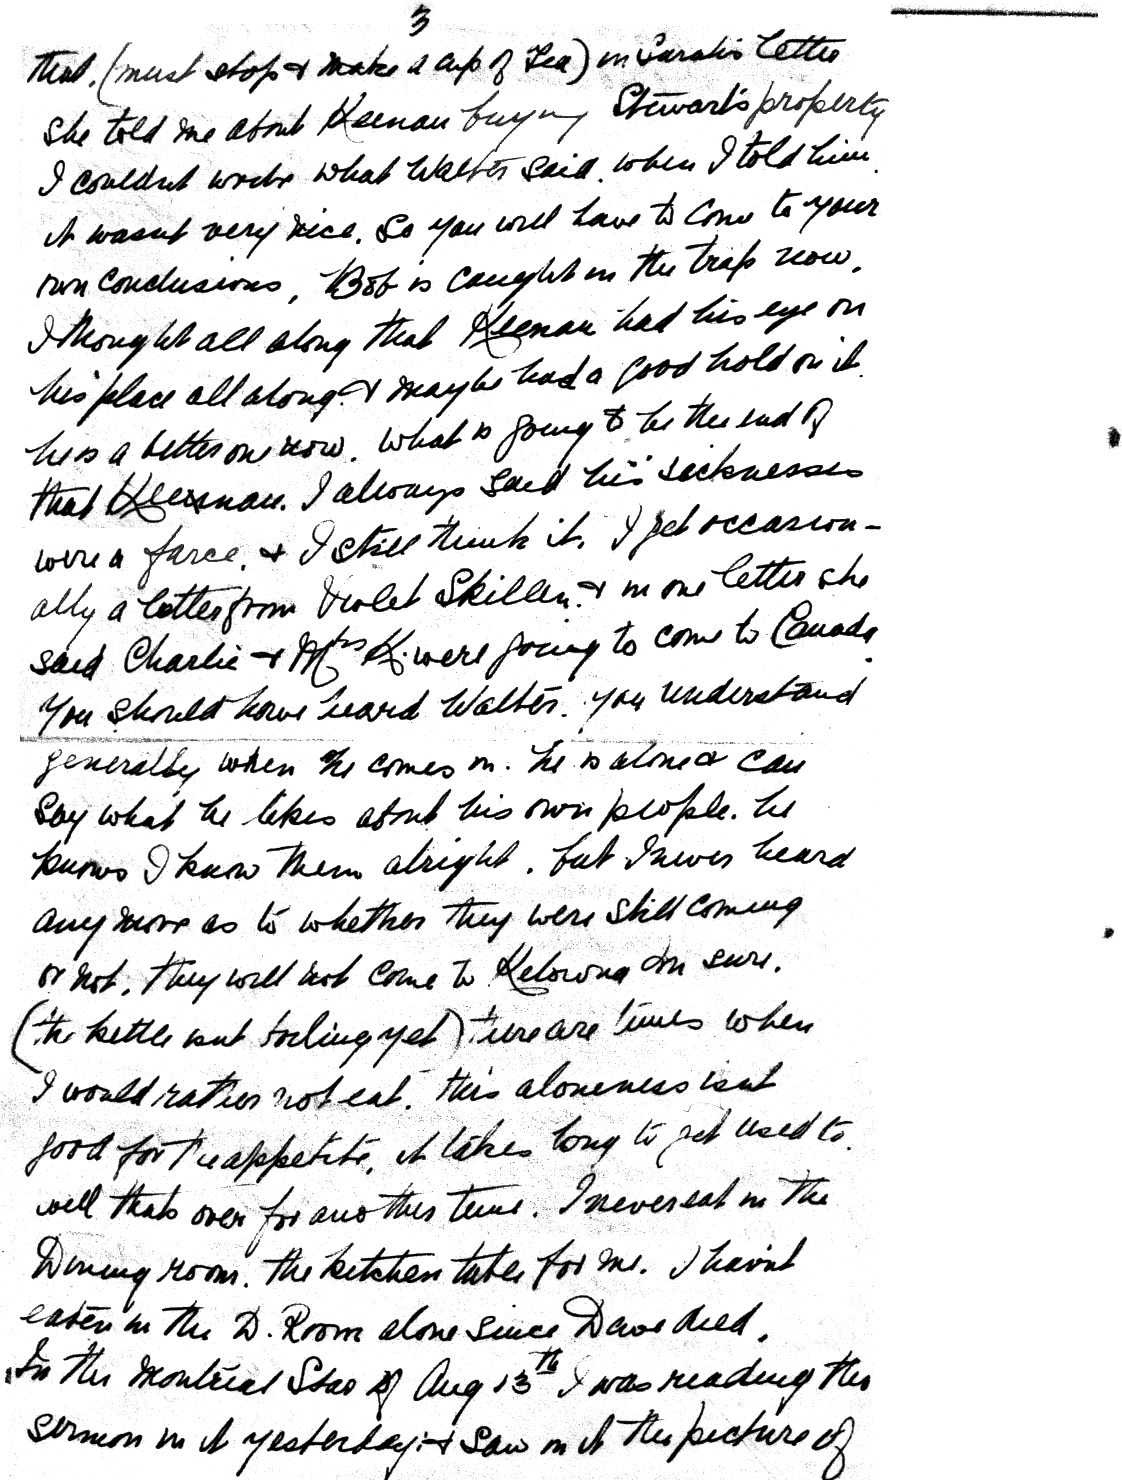 3
that. (must stop & make a cup of Tea) in Sarah's letter
she told me about Keenan buying Stewart's property
I couldnt write what Walter said. when I told him.
it wasnt very nice. So you will have to come to your
own conclusions, Bob is caught in the trap now.
I thought all along that Keenan had his eye on
his place all along. & maybe had a good hold on it.
he is a better one now. What is going to be the end of
that Keenan. I always said his sicknesses
were a farce. & I still think it. I get occasion-
ally a letter from Violet Skillen. & in one letter she
said Charlie & Mrs K. were going to come to Canada.
You should have heard Walter. you understand
generally when he comes in. he is alone & can
say what he likes about his own people. he
knows I know them alright. but I never heard
any more as to whether they were still coming
or not. they will not come to Kelowna Im sure.
(the kettle isnt boiling yet) there are times when
I would rather not eat. this aloneness isnt
good for the appetite. it takes long to get used to.
well thats over for another time. I never eat in the
Dining room. the kitchen table for me. I havint
eaten in the D. Room alone since Dave died.
In the Montreal Star of Aug 13th I was reading the
sermon in it yesterday. & saw in it the picture of